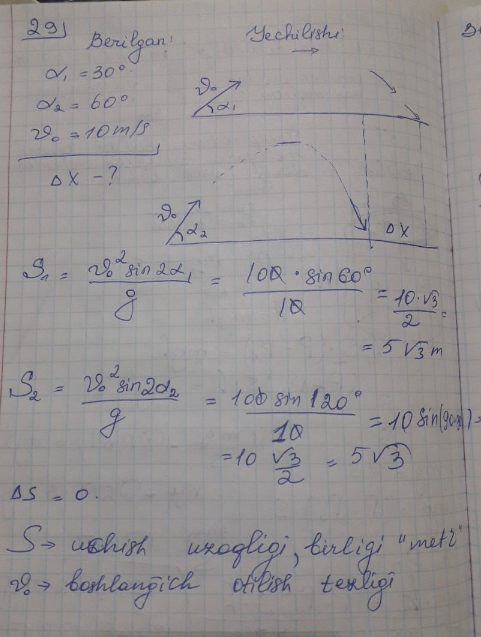 29) Berilgan: Yechilishi
α₁ = 30°
α₂ = 60°
v₀ = 10 m/s
ΔX - ?
v₀ α₁
v₀ α₂ ΔX
S₁ = v₀² sin 2α₁ / g = 100 · sin 60° / 10 = 10 · √3 / 2 =
= 5√3 m
S₂ = v₀² sin 2α₂ / g = 100 sin 120° / 10 = 10 sin(90
= 10 √3 / 2 = 5√3
ΔS = 0.
S → uchish uzoqligi, birligi "metr"
v₀ → boshlangich otilish tezligi